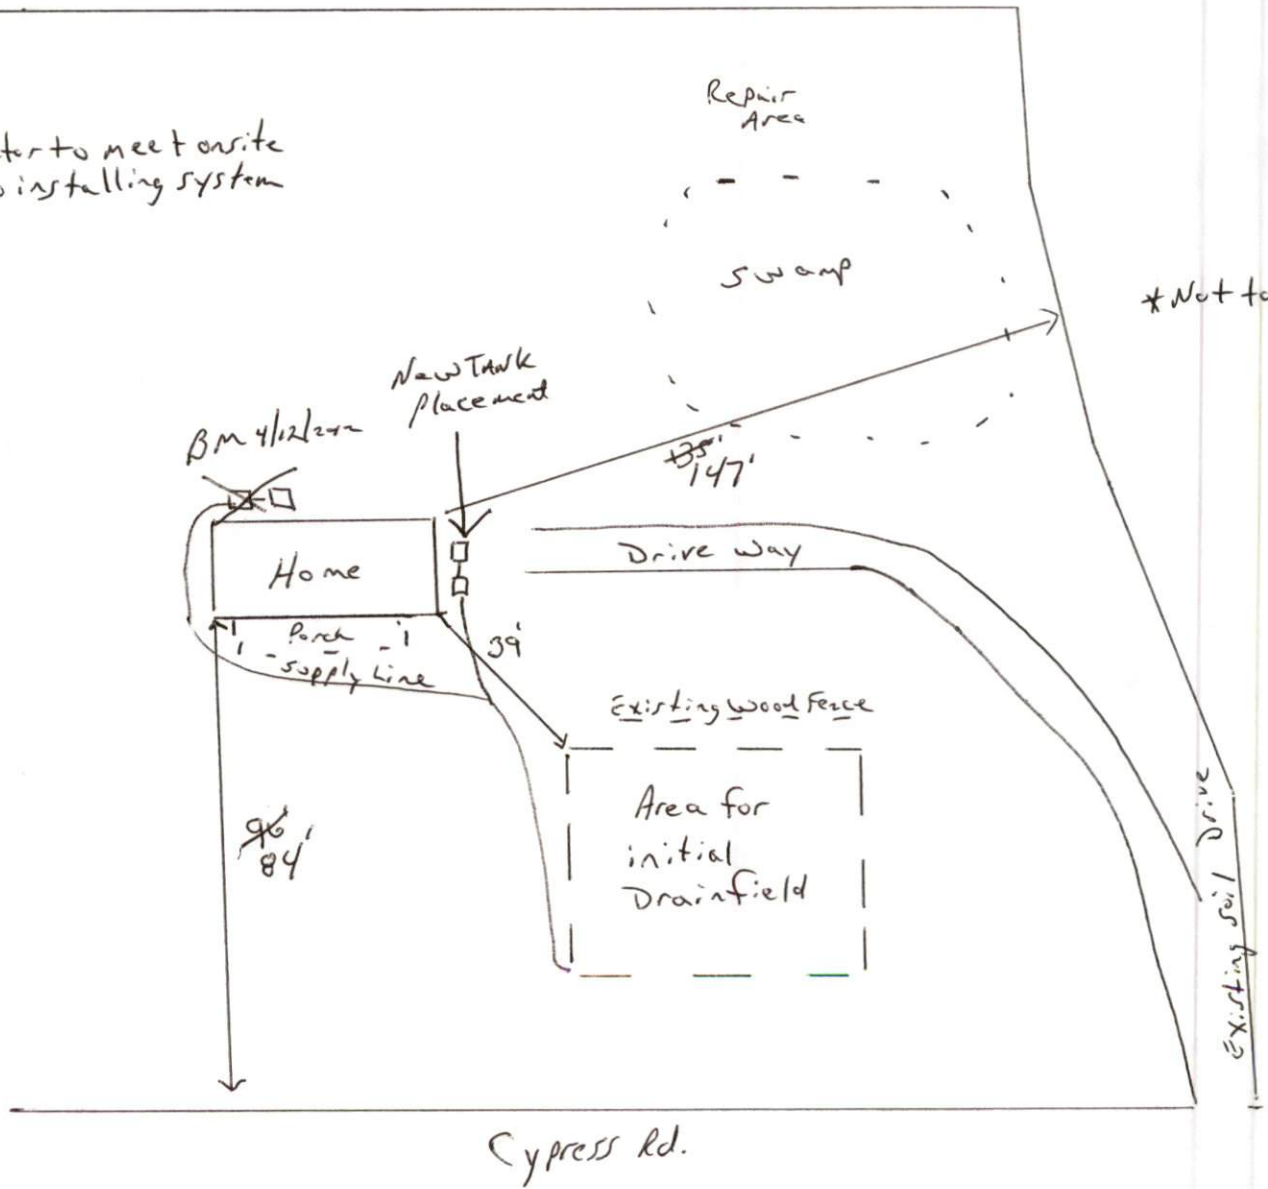 Repair
Area
ter to meet onsite
o installing system
Swamp
*Not to
New TANK
Placement
BM 4/12/2
135'
147'
Home
Drive Way
Porch
Supply Line
39'
Existing Wood Fence
Area for
initial
Drainfield
96
84'
Existing Soil Drive
Cypress Rd.